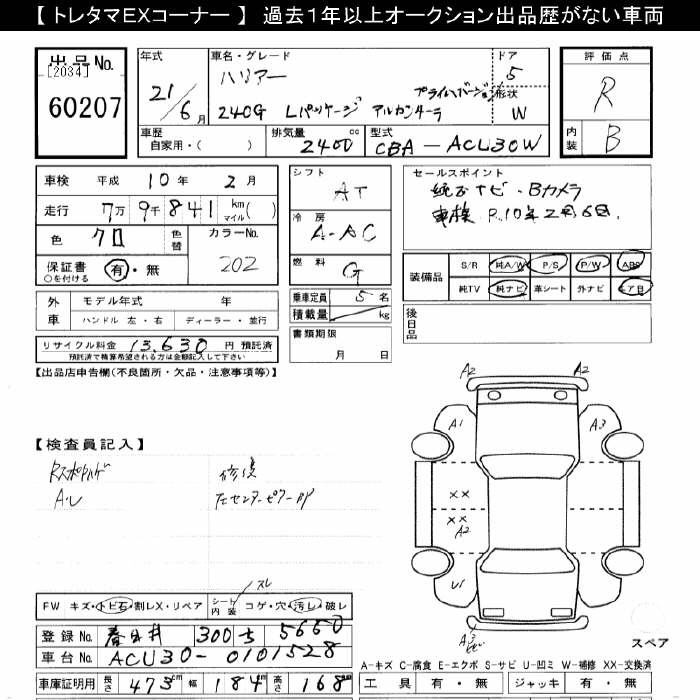 【 トレタマEXコーナー 】 過去１年以上オークション出品歴がない車両
出品No.
[2034]
60207
年式
21/6月
車名・グレード
ハリアー
240G Lパッケージ アルカンターラ
プライムバージョン
ドア
5
形状
W
評価点
R
内装
B
車歴
自家用・( )
排気量
2400 cc
型式
CBA - ACU30W
車検 平成 10年 2月
走行 7万 9千 841 km マイル ( )
色 クロ
色替
カラーNo.
202
保証書 有・無
○を付ける
シフト
AT
冷房
A-AC
燃料
G
セールスポイント
純正ナビ・Bカメラ
車検 R.10年2月6日.
装備品 S/R 純A/W P/S P/W ABS
純TV 純ナビ 革シート 外ナビ エアB
外車 モデル年式 年
ハンドル 左・右 ディーラー・並行
乗車定員 5名
積載量 kg
後日品
リサイクル料金 13,630 円 預託済
預託済で精算希望される方は金額記入して下さい
書類期限
月 日
【出品店申告欄(不良箇所・欠品・注意事項等)】
【検査員記入】
修復
A2 A2
A1 A3
XX
XX
A2
U1
A3
FW キズ・トビ石・割レX・リペア
シート内装 コゲ・穴・汚レ・破レ
スレ
登録No. 春日井 300 5650
車台No. ACU30-0101528
車庫証明用 長さ 473cm 幅 184cm 高さ 168cm
スペア
A-キズ C-腐食 E-エクボ S-サビ U-凹ミ W-補修 XX-交換済
工具 有・無 ジャッキ 有・無